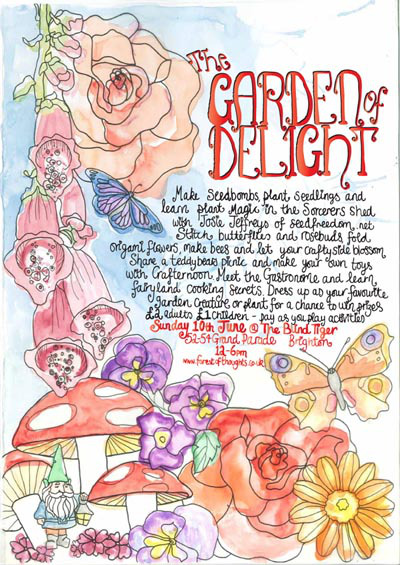 The
GARDEN of
DELIGHT
Make Seedbombs, plant seedlings and
learn plant Magic in the Sorcerers Shed
with Josie Jeffreys of seedfreedom.net
Stitch butterflies and rosebuds, fold
origami flowers, make bees and let your craftyside blossom
Share a teddybears picnic and make your own toys
with Crafternoon. Meet the Gastronome and learn
fairyland cooking Secrets. Dress up as your favourite
garden Creature or plant for a chance to win prizes
£2 adults £1 children - pay as you play activities
Sunday 10th June @ The Blind Tiger
52-54 Grand Parade Brighton
12-6pm
www.forestofthoughts.co.uk